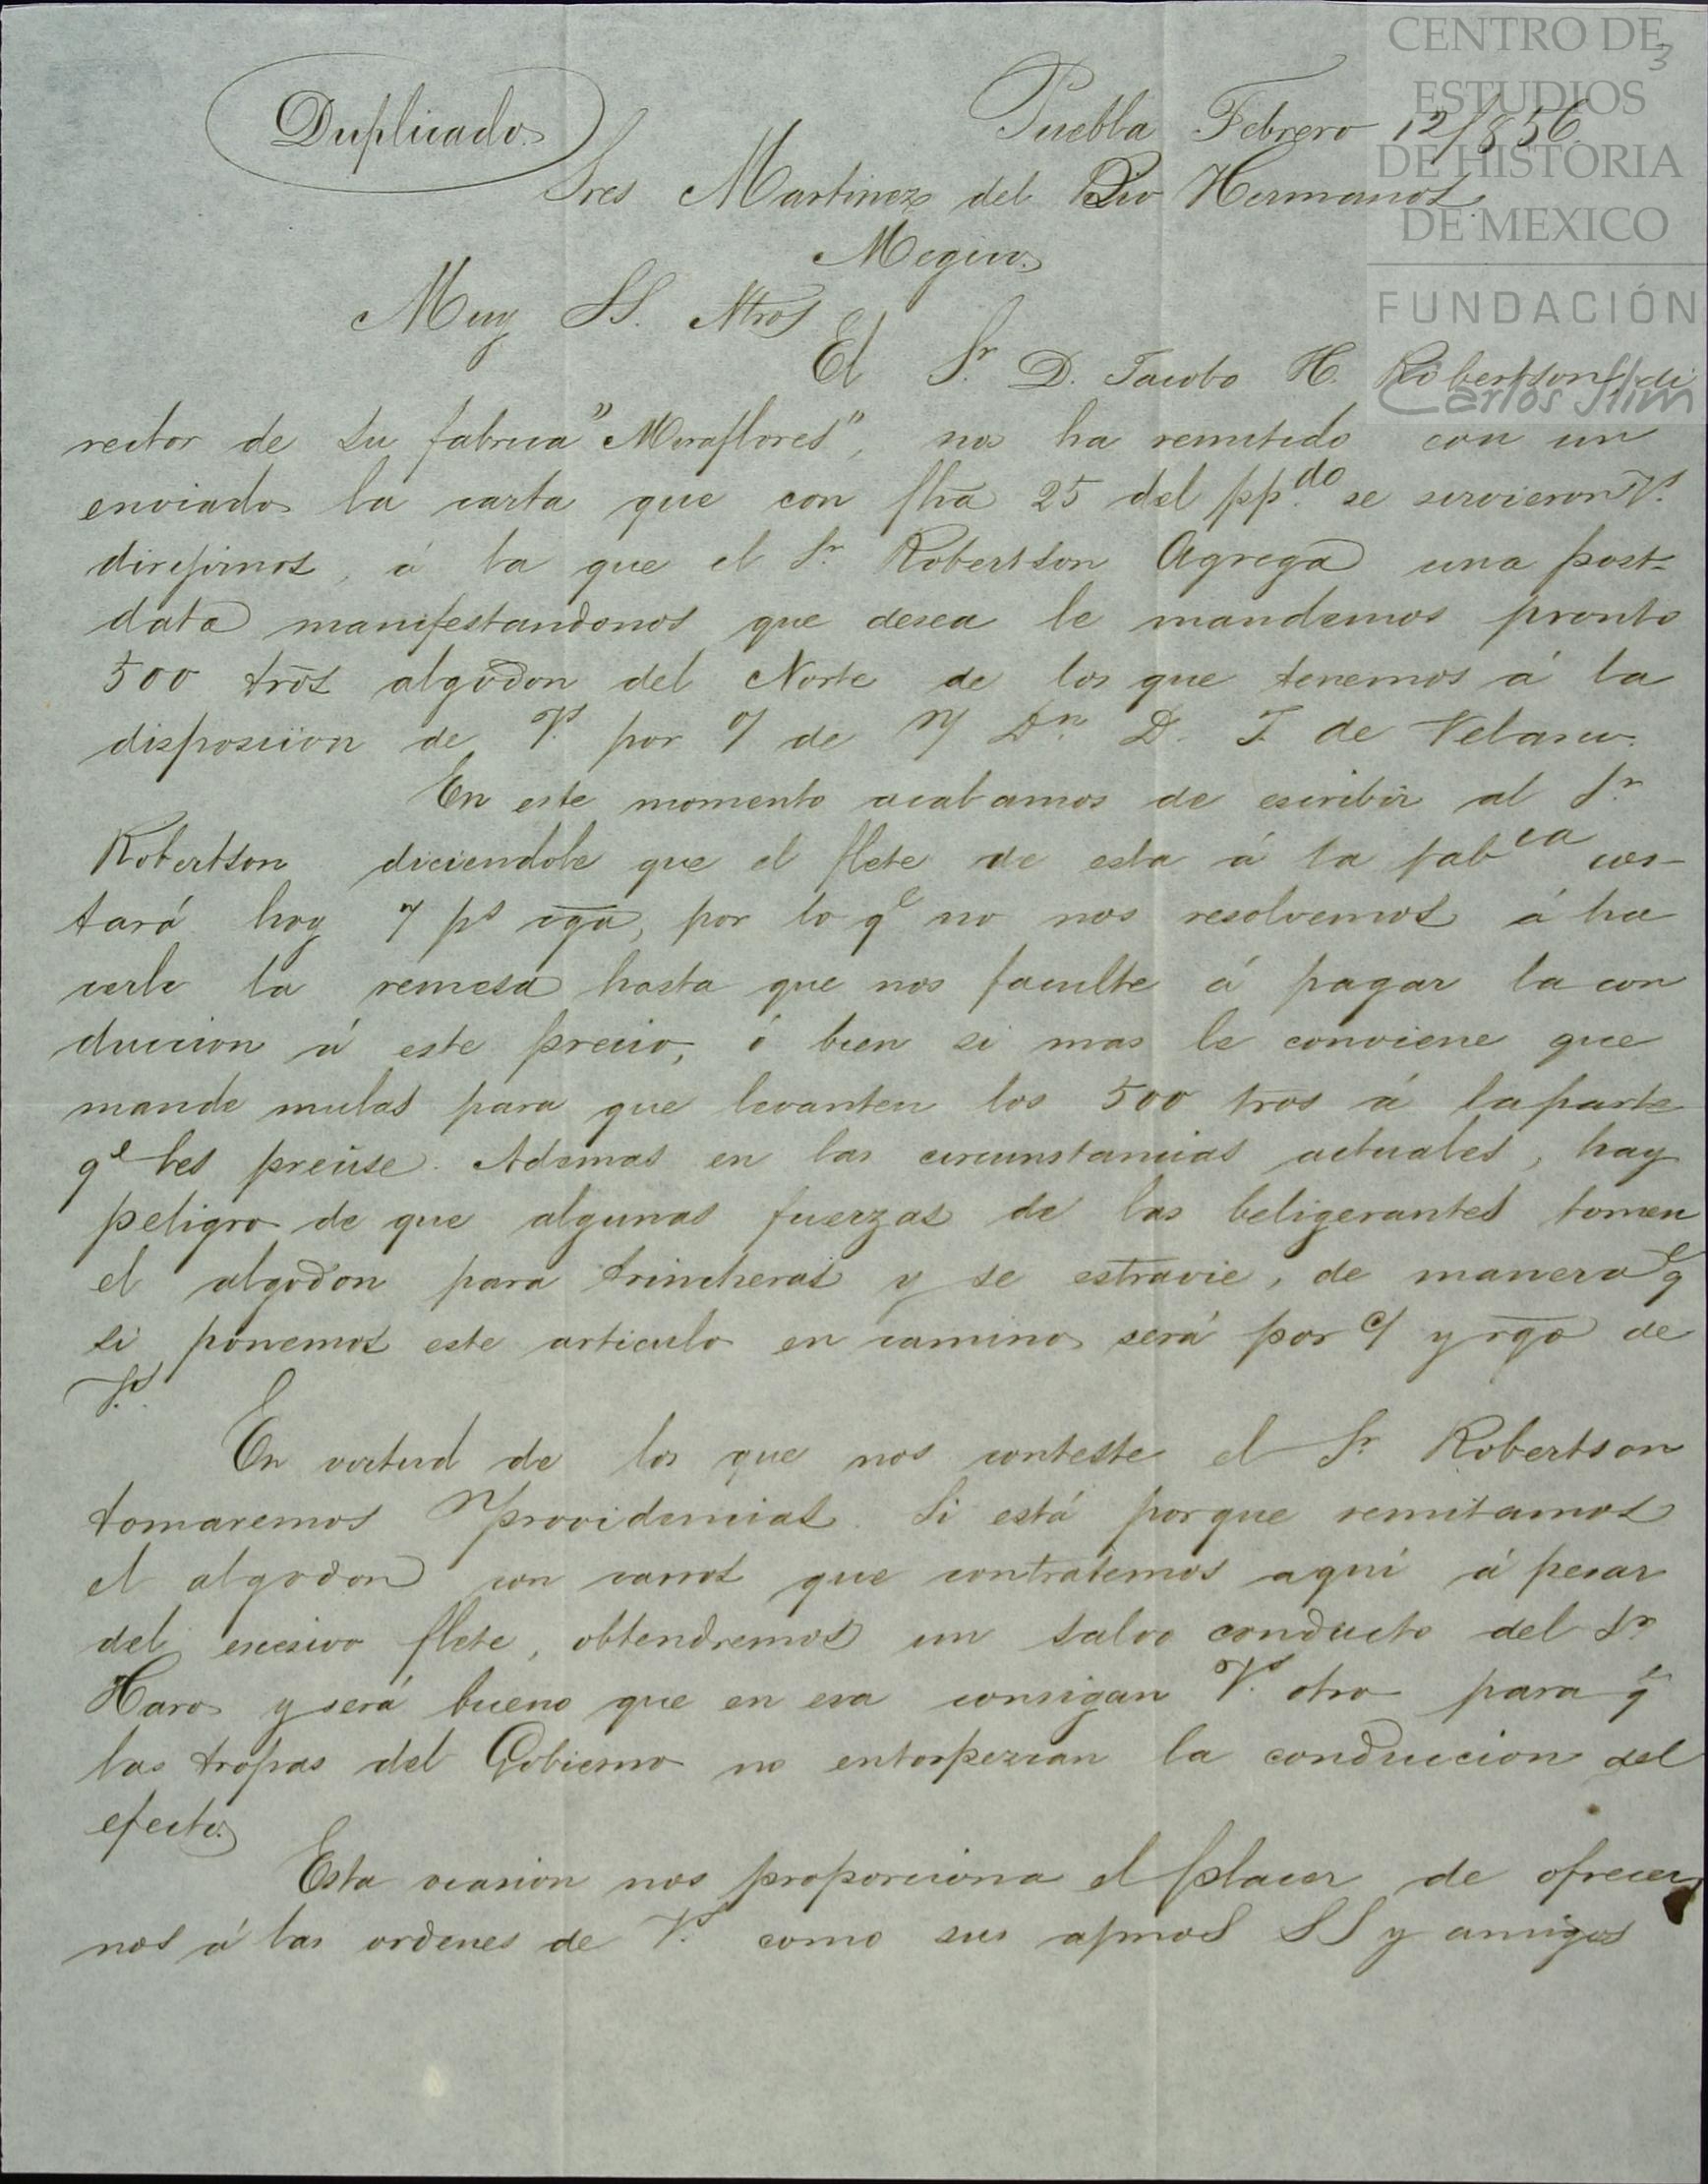 Duplicado.
Puebla Febrero 12/856.
Sres Martinez del Rio Hermanos.
Megico.
Muy SS. Ntros
El Sr. D. Jacobo H. Robertson di
rector de su fabrica "Miraflores", nos ha remitido con un
enviado la carta que con fha 25 del pp.do se sirvieron Vs.
dirijirnos, á la que el Sr. Robertson Agrega una post-
data manifestandonos que desea le mandemos pronto
500 tros algodon del Norte de los que tenemos á la
disposicion de Vs. por o/ de n/ Dn. D. J. de Velasco.
En este momento acabamos de escribir al Sr.
Robertson diciendole que el flete de esta á la fabca cos-
tará hoy 7 ps cga, por lo qe no nos resolvemos á ha
cerle la remesa hasta que nos faculte á pagar la con
duccion á este precio, ó bien si mas le conviene que
mande mulas para que levanten los 500 tros á la parte
qe les precise. Ademas en las circunstancias actuales, hay
peligro de que algunas fuerzas de las beligerantes tomen
el algodon para trincheras y se estravie, de manera qe
si ponemos este articulo en camino será por c/ y rgo de
Vs.
En virtud de los que nos conteste el Sr Robertson
tomaremos providencias. Si está porque remitamos
el algodon con carros que contratemos aquí á pesar
del escesivo flete, obtendremos un salvo conducto del Sr
Haro y será bueno que en esa consigan Vs. otro para qe
las tropas del Gobierno no entorpezcan la conduccion del
efecto.
Esta ocasion nos proporciona el placer de ofrecer
nos á las ordenes de Vs. como sus afmos SS y amigos
3
CENTRO DE
ESTUDIOS
DE HISTORIA
DE MEXICO
FUNDACIÓN
Carlos Slim